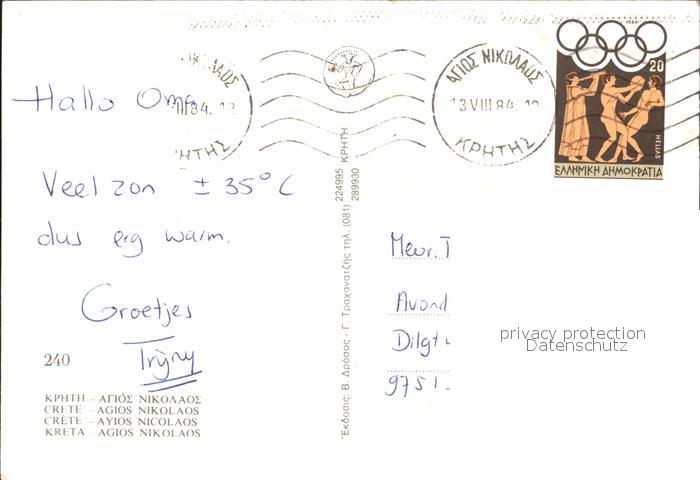 Hallo Oma
Veel zon ± 35° C
dus erg warm.
Groetjes
240
ΚΡΗΤΗ – ΑΓΙΟΣ ΝΙΚΟΛΑΟΣ
CRETE – AGIOS NIKOLAOS
CRÈTE – AYIOS NICOLAOS
KRETA – AGIOS NIKOLAOS
Έκδοσις: Β. Δρόσος - Γ. Τραχανατζής τηλ. (081) 224995 ΚΡΗΤΗ
289930
ΙΙΙ 84.
ΗΤΗΣ
ΑΓΙΟΣ ΝΙΚΟΛΑΟΣ
13 VIII 84.
ΚΡΗΤΗΣ
20
HELLAS
ΕΛΛΗΝΙΚΗ ΔΗΜΟΚΡΑΤΙΑ
Mevr. T
Avond
Dilgt
9751
privacy protection
Datenschutz